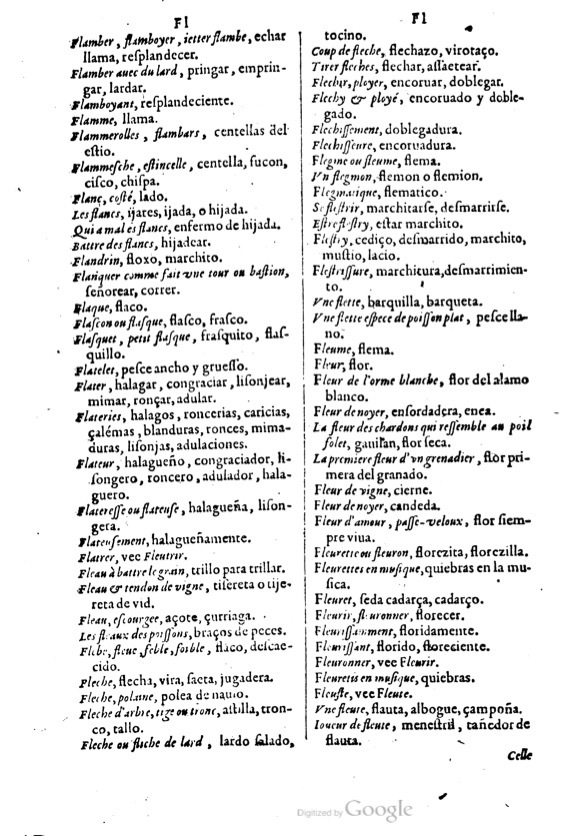 Fl
Flamber, flamboyer, ietter flambe, echar
llama, reſplandecer.
Flamber auec du lard, pringar, emprin-
gar, lardar.
Flamboyant, reſplandeciente.
Flamme, llama.
Flammerolles, flambars, centellas del
eſtio.
Flammeſche, eſtincelle, centella, fucon,
ciſco, chiſpa.
Flanc, coſté, lado.
Les flancs, ijares, ijada, o hijada.
Qui a mal es flancs, enfermo de hijada.
Battre des flancs, hijadear.
Flandrin, floxo, marchito.
Flanquer comme fait vne tour ou baſtion,
ſeñorear, correr.
Flaque, flaco.
Flaſcon ou flaſque, flaſco, fraſco.
Flaſquet, petit flaſque, fraſquito, flaſ-
quillo.
Flatelet, peſce ancho y grueſſo.
Flater, halagar, congraciar, liſonjear,
mimar, ronçar, adular.
Flateries, halagos, roncerias, caricias,
çalémas, blanduras, ronces, mima-
duras, liſonjas, adulaciones.
Flateur, halagueño, congraciador, li-
ſongero, roncero, adulador, hala-
guero.
Flatereſſe ou flateuſe, halagueña, liſon-
gera.
Flateuſement, halagueñamente.
Flatrer, vee Fleurir.
Fleau à battre le grain, trillo para trillar.
Fleau & tendon de vigne, tiſereta o tije-
reta de vid.
Fleau, eſcourgee, açote, çurriaga.
Les fleaux des poiſſons, braços de peces.
Flebe, fleue, feble, foible, flaco, deſcae-
cido.
Fleche, flecha, vira, ſaeta, jugadera.
Fleche, polaine, polea de nauio.
Fleche d'arbre, tige ou tronc, aſtilla, tron-
co, tallo.
Fleche ou fliche de lard, lardo ſalado,
Fl
tocino.
Coup de fleche, flechazo, virotaço.
Tirer fleches, flechar, aſſaetear.
Flechir, ployer, encoruar, doblegar.
Flechy & ployé, encoruado y doble-
gado.
Flechiſſement, doblegadura.
Flechiſſeure, encoruadura.
Flegme ou fleume, flema.
Vn flegmon, flemon o flemion.
Flegmatique, flematico.
Se fleſtrir, marchitarſe, deſmarrirſe.
Eſtre fleſtry, eſtar marchito.
Fleſtry, cediço, deſmarrido, marchito,
muſtio, lacio.
Fleſtriſſure, marchitura, deſmarrimien-
to.
Vne flette, barquilla, barqueta.
Vne flette eſpece de poiſſon plat, peſce lla-
no.
Fleume, flema.
Fleur, flor.
Fleur de l'orme blanche, flor del alamo
blanco.
Fleur de noyer, enſordadera, enea.
La fleur des chardons qui reſſemble au poil
folet, gauilan, flor ſeca.
La premiere fleur d'vn grenadier, flor pri-
mera del granado.
Fleur de vigne, cierne.
Fleur de noyer, candeda.
Fleur d'amour, paſſe-veloux, flor ſiem-
pre viua.
Fleurette ou fleuron, florezita, florezilla.
Fleurettes en muſique, quiebras en la mu-
ſica.
Fleuret, ſeda cadarça, cadarço.
Fleurir, fleuronner, florecer.
Fleuriſſamment, floridamente.
Fleuriſſant, florido, floreciente.
Fleuronner, vee Fleurir.
Fleuretis en muſique, quiebras.
Fleuſte, vee Fleute.
Vne fleute, flauta, albogue, çampoña.
Ioueur de fleute, meneſtril, tañedor de
flauta.
Celle
Digitized by Google